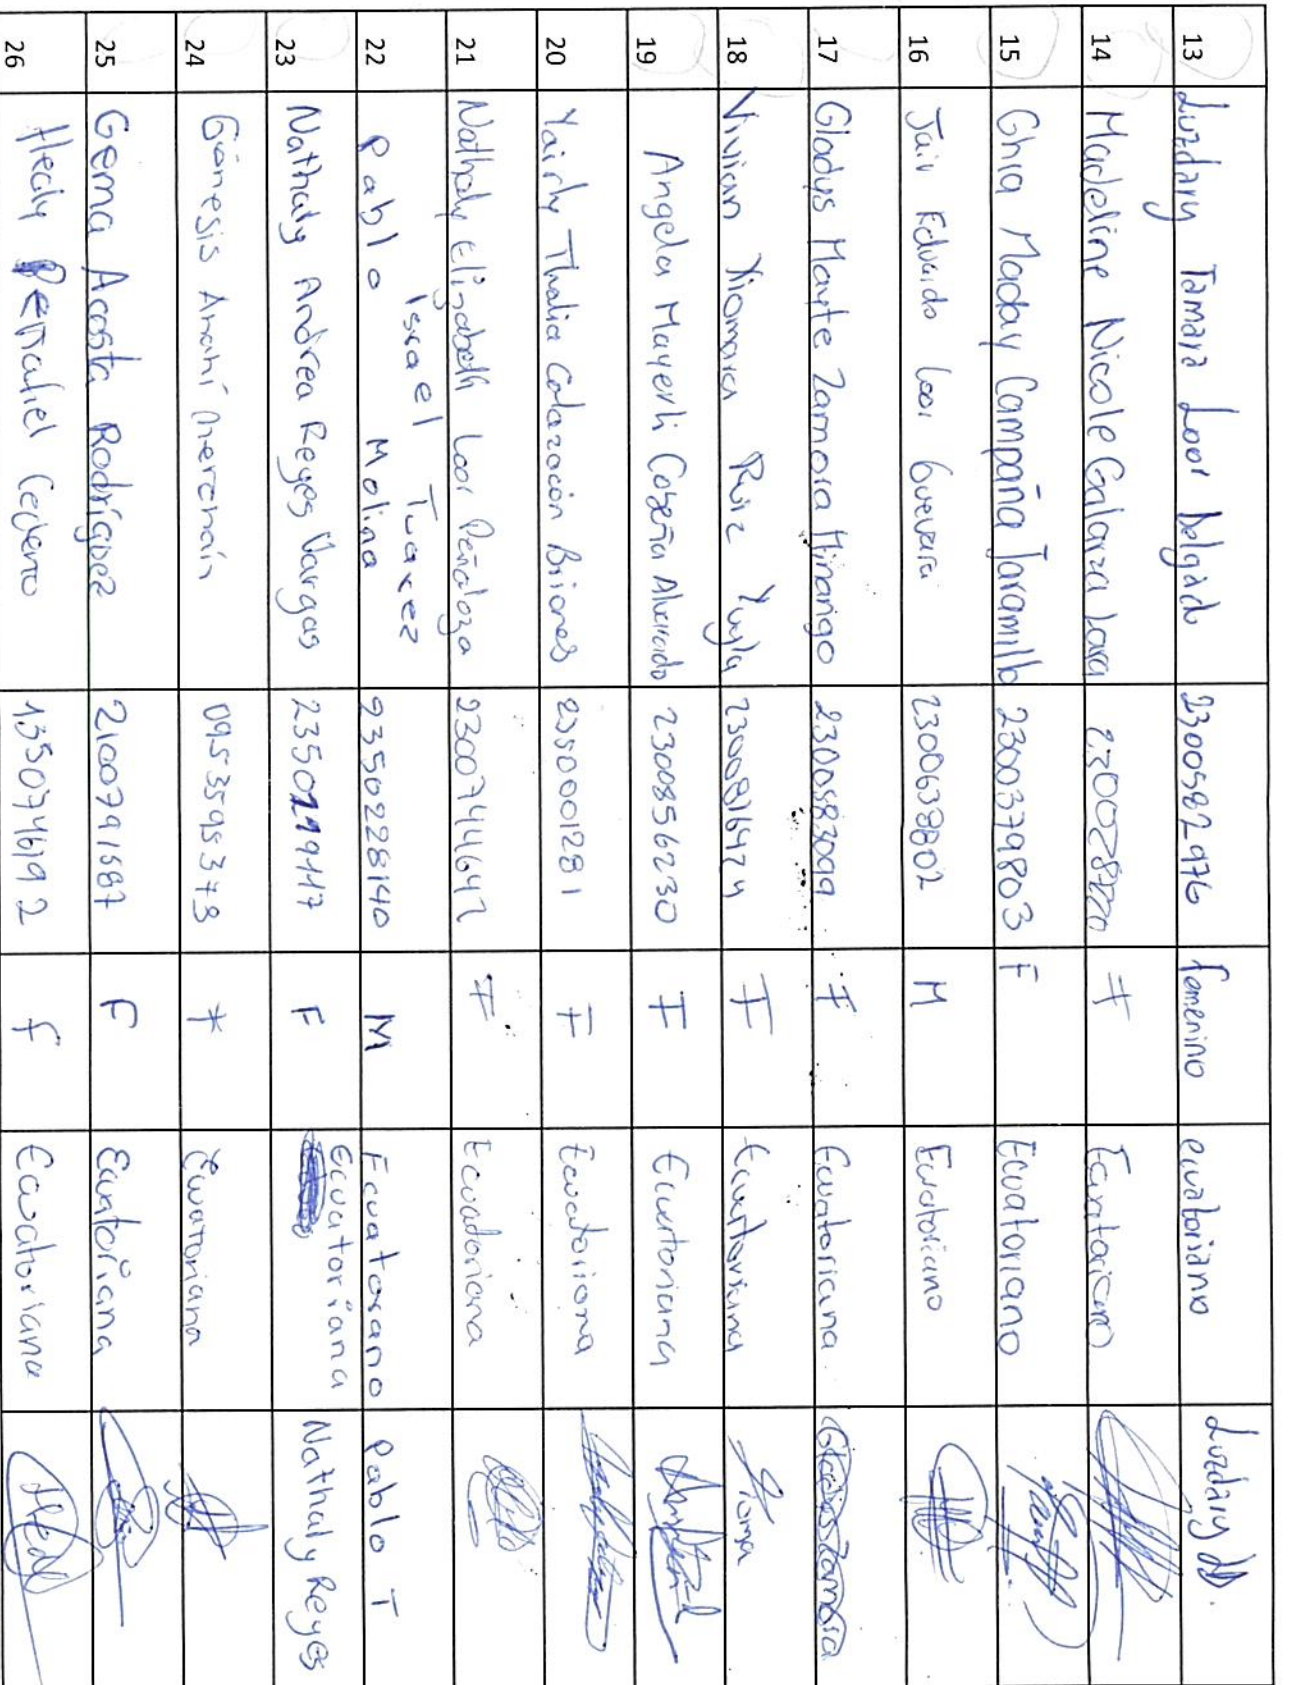 13 Luzdary Tamara Loor Delgado 2300582976 femenino ecuatoriano Luzdary
14 Madeline Nicole Galarza Lara F Ecuatoriano
15 Ghia Maday Campaña Jaramillo 2300379803 F Ecuatoriano
16 Jair Eduardo Loor Guevara 2300638802 M Ecuatoriano
17 Gladys Mayte Zamora Minango 2300583099 F Ecuatoriana Gladys Zamora
18 Vivian Xiomara Ruiz F Ecuatoriana
19 Angela Mayerli Cobeña Alvarado 2300856230 F Ecuatoriana
20 Yairly Thalia Calazacón Briones 2350001281 F Ecuatoriana
21 Nathaly Elizabeth Loor Peñaloza 2300744642 F Ecuatoriana
22 Pablo Israel Tuarez Molina 2350228140 M Ecuatoriano Pablo T
23 Nathaly Andrea Reyes Vargas F Ecuatoriana Nathaly Reyes
24 Génesis Anahí 0953595373 F Ecuatoriana
25 Gema Acosta Rodríguez 2100791587 F Ecuatoriana
26 Hedy Cedeño 1350746192 f Ecuatoriana